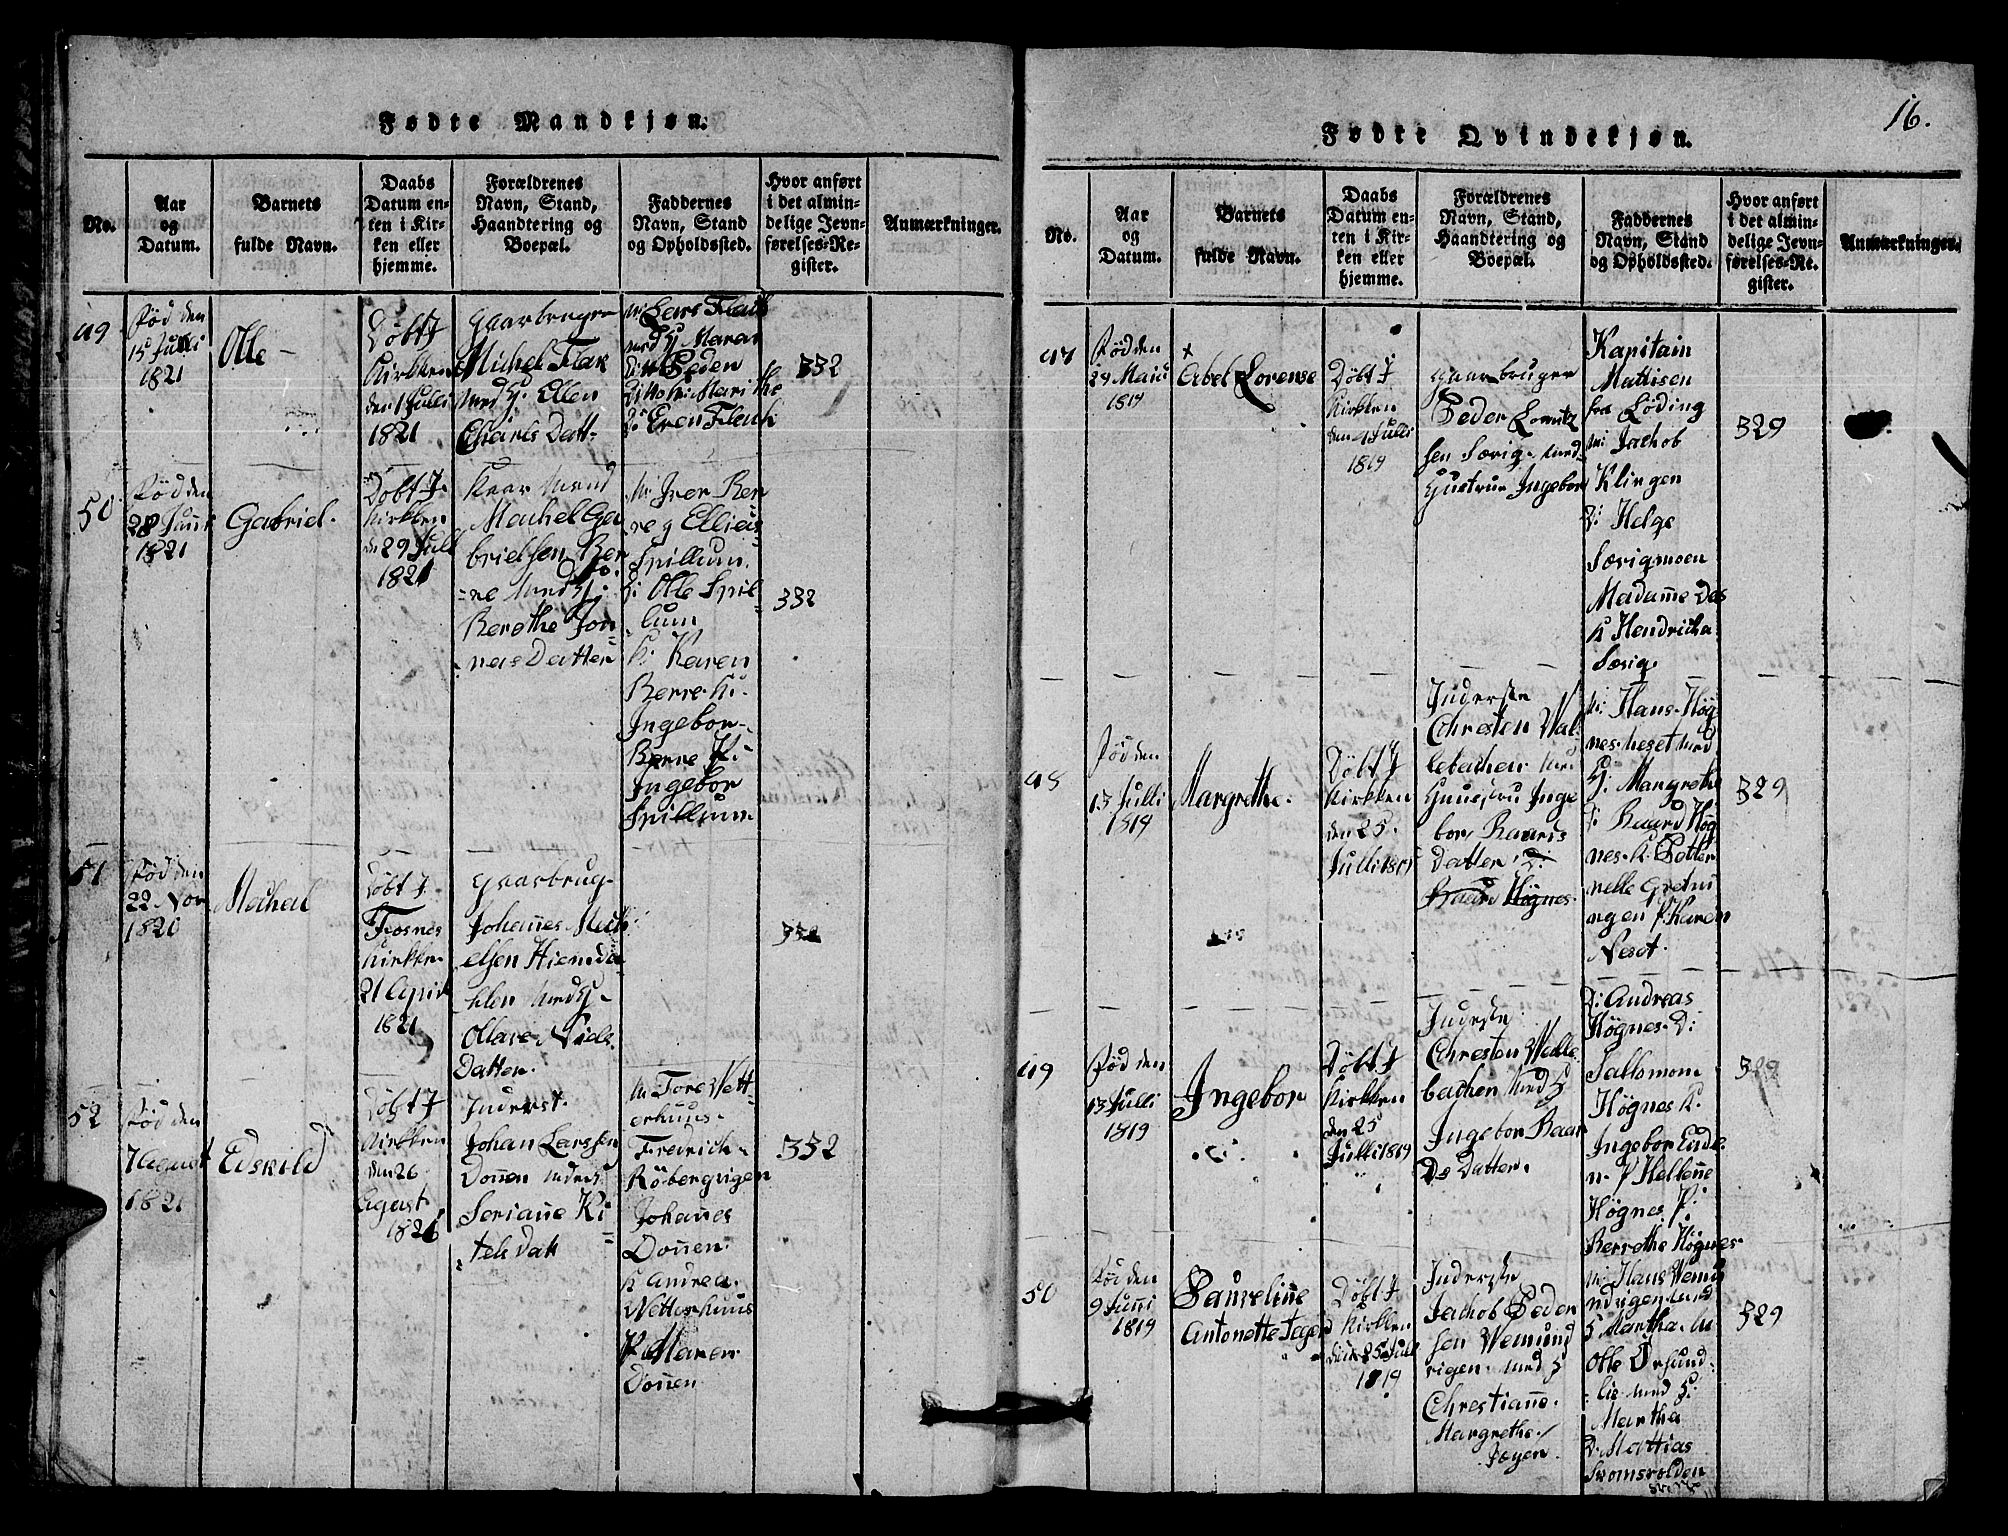 Fødte Mandkjøn.
No.
Aar
og
Datum.
Barnets
fulde Navn.
Daabs
Datum en-
ten i Kir-
ken eller
hjemme.
Forældrenes
Navn, Stand,
Haandtering og
Boepæl.
Faddernes
Navn, Stand
og Opholdssted.
Hvor anført
i det almin-
delige Jevn-
førelses-Re-
gister.
Anmærkninger.
49
Fød den
15 Juli
1821
Olle
Døbt J
Kirkken
den 1 Julli
1821
Gaarbruger
Michel Flak
med H. Ellen
Datt-
332
50
Fød den
28 Junii
1821
Gabriel.
Døbt J.
Kirkken
den 29 Julli
1821
Kaar Mand
Mechel Ga
brielsen Ber
ne med H.
Berethe Jon
nas Datter
M: Iver Ber
ne g Ellias
Spillum.
D: Olle Spil
lum
K: Karen
Berre. K:
Ingebor
Berne K:
Ingebor
Spillum
332
51
Fød den
22 Nov
1820
Mechel
Døbt J.
Fosnes
Kirkke.
21 April
1821
Gaarbrug-
Johannes Mech
elsen Hiemda
hlen med H
Ollave Niels
Datter.
332
52
Fød den
7 Agust
1821
Edskild
Døbt J
Kirkken
den 26
Agust
1821
Inderst.
Johan Larssen
Donnen med H
Seriane Ki
tels Datt
M: Tore Vett
erhuus.
Fredrick
Röbergvigen
Johannes
Donnen.
K Andrea.
Wetterhuus
P Maren
Donnen
332
16.
Fødte Qvindekjøn.
No.
Aar
og
Datum.
Barnets
fulde Navn.
Daabs
Datum en-
ten i Kir-
ken eller
hjemme.
Forældrenes
Navn, Stand,
Haandtering og
Boepæl.
Faddernes
Navn, Stand
og Opholdssted.
Hvor anført
i det almin-
delige Jevn-
førelses-Re-
gister.
Anmærkninger.
47
Fød den
24 Maii
1819
Abel Lorense
Døbt J
Kirkken
den 4 Julli
1819
Gaarbruger
Peder Lorntz
sen Særig med
Hustrue Ingebor
Kapitain
Mattisen
fra Løding
M: Jachob
Klingen
D: Helge
Særigmoen
Madamme Das
K Hendricha
Særig.
329
48
Fød den
13 Julli
1819
Margrethe.
Døbt J
Kirkken
den 25.
Julli 1819
Inderste
Chresten Wal
lebachen med
Huuestru Inge
bor, Baards
Datter.
Baard Høgnes.
M: Hans Høg
neseset med
H: Margrethe
D: Baard Høg
nes. K. Petter
nelle
P Karen
Neset.
329
49
Fød den
13 Julli
1819
Ingebor
Døbt J
Kirkken
den 25
Julli 1819
Inderste
Chresten Walle
bachen med H
Ingebor Baar
Ds Datter.
D: Andreas
Høgnes. D:
Sallomon
Høgnes K.
Ingebor
P Hellene
Høgnes P:
Berrethe Høgnes
329
50
Fød den
9 Junni
1819
Paureline
Antonette
Døbt J
Kirkken
den 25 Julli
1819
Inderste
Jachob Peder
sen Wemund
vigen med H
Chrestianne
Margrethe
M: Hans Wemu
ndvigen med
H Martha. M
Olle Ørsund
lie med H:
Martha
D: Mattias
Svomsvolden
329